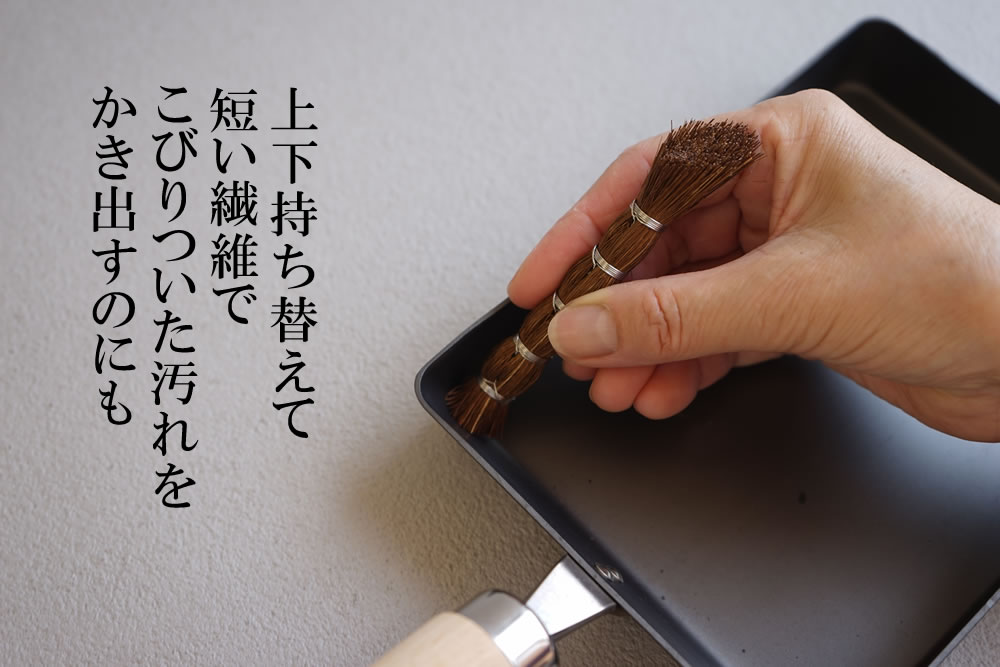 上下持ち替えて
短い繊維で
こびりついた汚れを
かき出すのにも